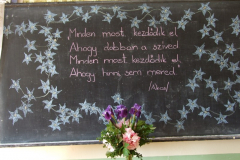 Minden most kezdődik el,
Ahogy dobban a szíved
Minden most kezdődik el
Ahogy hinni sem mered.